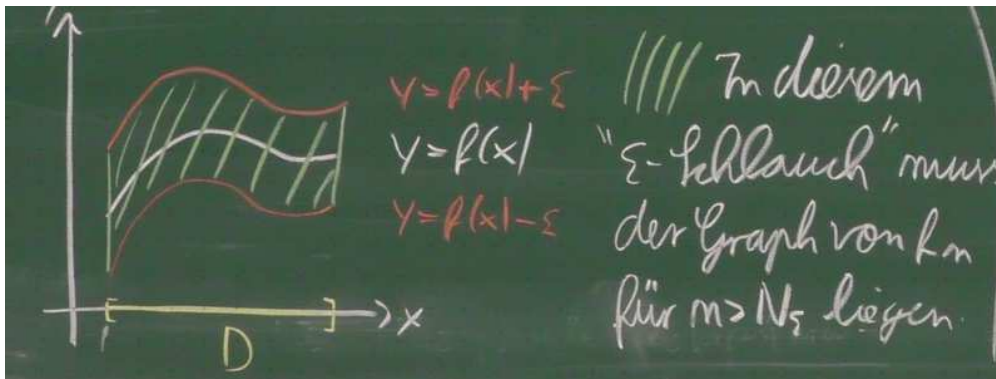 y = f(x) + ε
y = f(x)
y = f(x) - ε
x
D
In diesem
"ε-Schlauch" muss
der Graph von fn
für n > Nε liegen.